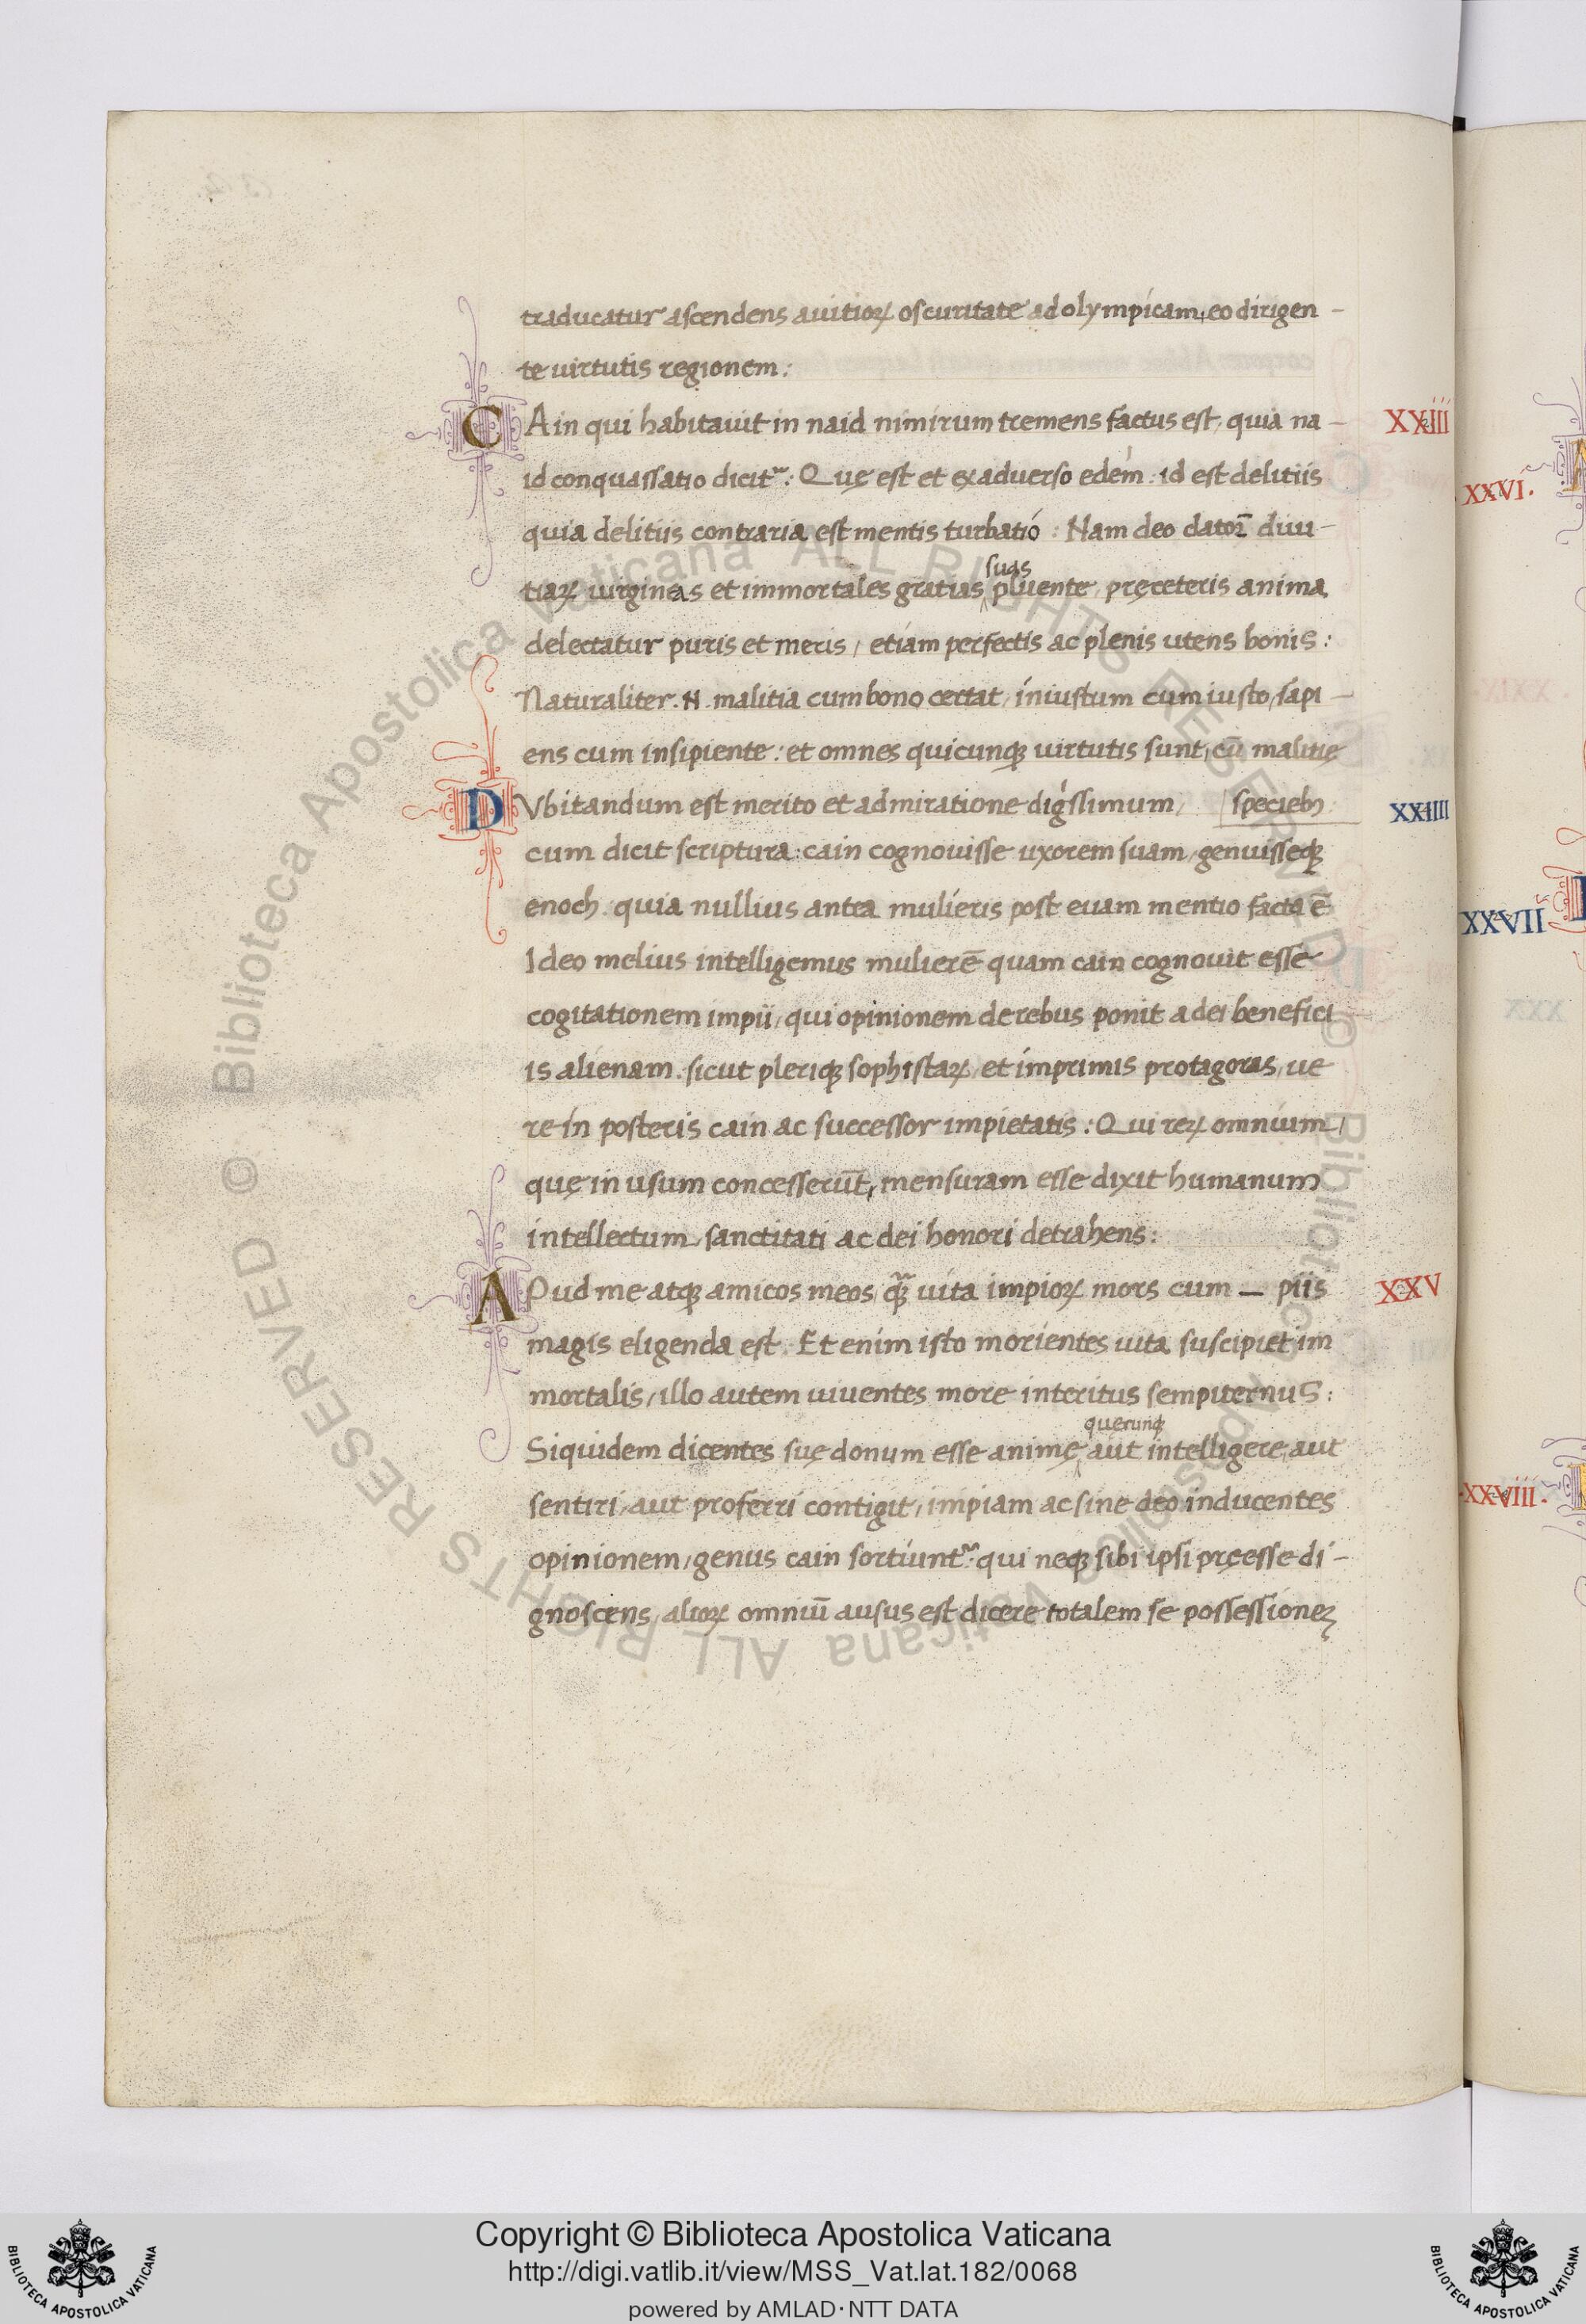 traducatur ascendens auitioꝝ oscuritate ad olympicam, eo dirigen-
te uirtutis regionem:
CAin qui habitauit in naid nimirum tremens factus est, quia na-
XXIII
id conquassatio dicit᷑: Quę est et exaduerso edem: id est delitiis
quia delitiis contraria est mentis turbatio: Nam deo datore diui-
suas
tiaꝝ uirgineas et immortales gratias pluente pręceteris anima
delectatur puris et meris, etiam perfectis ac plenis utens bonis:
Naturaliter .N. malitia cum bono certat, iniustum cum iusto, sapi-
ens cum insipiente: et omnes quicunqꝫ uirtutis sunt, cū malitię
DVbitandum est merito et admiratione digssimum, speciebꝫ
XXIIII
cum dicit scriptura: cain cognouisse uxorem suam, genuisseqꝫ
enoch. quia nullius antea mulieris post euam mentio facta ē
Ideo melius intelligemus mulierē quam cain cognouit esse
cogitationem impii, qui opinionem de rebus ponit a dei benefici
is alienam. sicut pleriqꝫ sophistaꝝ, et imprimis protagoras, ue
re in posteris cain ac successor impietatis: Qui reꝝ omnium,
quę in usum concesserūt, mensuram esse dixit humanum
intellectum, sanctitati ac dei honori detrahens:
APud me atqꝫ amicos meos, qꝫ uita impioꝝ mors cum — piis
XXV
magis eligenda est. Et enim isto morientes uita suscipiet im
mortalis, illo autem uiuentes more interitus sempiternus:
querunqꝫ
Siquidem dicentes suę donum esse animę aut intelligere, aut
sentiri, aut proferri contigit, impiam ac sine deo inducentes
opinionem, genus cain sortiunt᷑: qui neqꝫ sibi ipsi pręesse di-
gnoscens, alioꝝ omniū ausus est dicere totalem se possessioneꝫ
XXVI.
XXVII
.XXVIII.
Copyright © Biblioteca Apostolica Vaticana
http://digi.vatlib.it/view/MSS_Vat.lat.182/0068
powered by AMLAD·NTT DATA
BIBLIOTECA APOSTOLICA VATICANA
BIBLIOTECA APOSTOLICA VATICANA
© Biblioteca Apostolica Vaticana ALL RIGHTS RESERVED
© Biblioteca Apostolica Vaticana ALL RIGHTS RESERVED